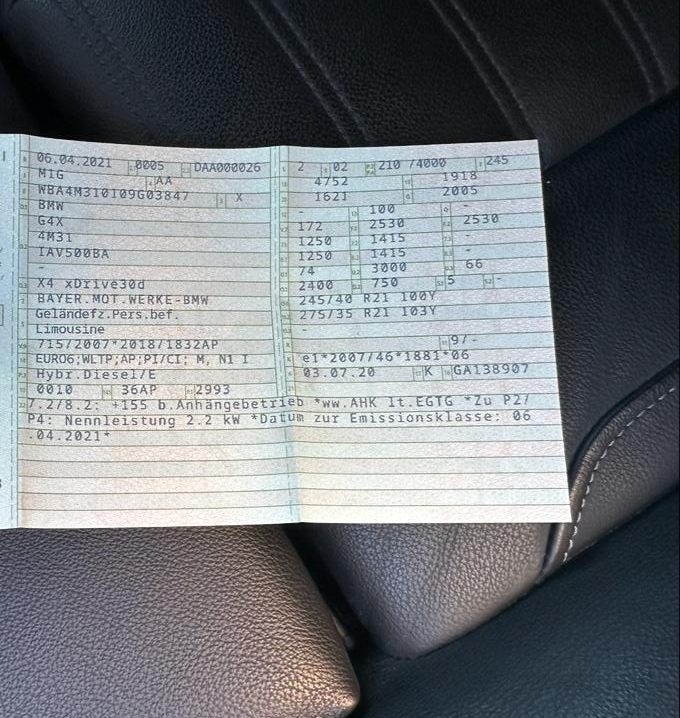 06.04.2021 0005 DAA000026
M1G AA
WBA4M310109G03847 X
BMW
G4X
4M31
IAV500BA
-
X4 xDrive30d
BAYER.MOT.WERKE-BMW
Geländefz.Pers.bef.
Limousine
715/2007*2018/1832AP
EURO6;WLTP;AP;PI/CI; M, N1 I
Hybr.Diesel/E
0010 36AP 2993
2 02 210 /4000 245
4752 1918
1621 2005
- 100 -
172 2530 2530
1250 1415 -
1250 1415 -
74 3000 66
2400 750 5 -
245/40 R21 100Y
275/35 R21 103Y
-
9/-
e1*2007/46*1881*06
03.07.20 K GA138907
7.2/8.2: +155 b.Anhängebetrieb *ww.AHK lt.EGTG *Zu P2/
P4: Nennleistung 2.2 kW *Datum zur Emissionsklasse: 06
.04.2021*